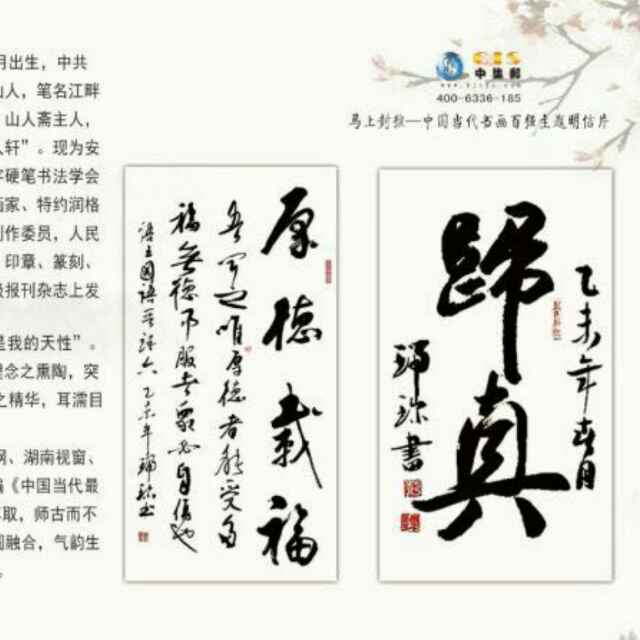 月出生，中共
山人，笔名江畔
山人斋主人，
轩”。现为安
硬笔书法学会
画家、特约润格
创作委员，人民
印章、篆刻、
报刊杂志上发
是我的天性”。
理念之熏陶，突
之精华，耳濡目
网、湖南视窗、
《中国当代最
取，师古而不
融合，气韵生
CIS
中集邮
400-6336-185
马上封猴—中国当代书画百强主题明信片
厚德载福
吾闻之唯厚德者能受多
福无德而服者众必自伤也
语出国语晋语六 乙未年瑞珍书
归真
乙未年春月
瑞珍书